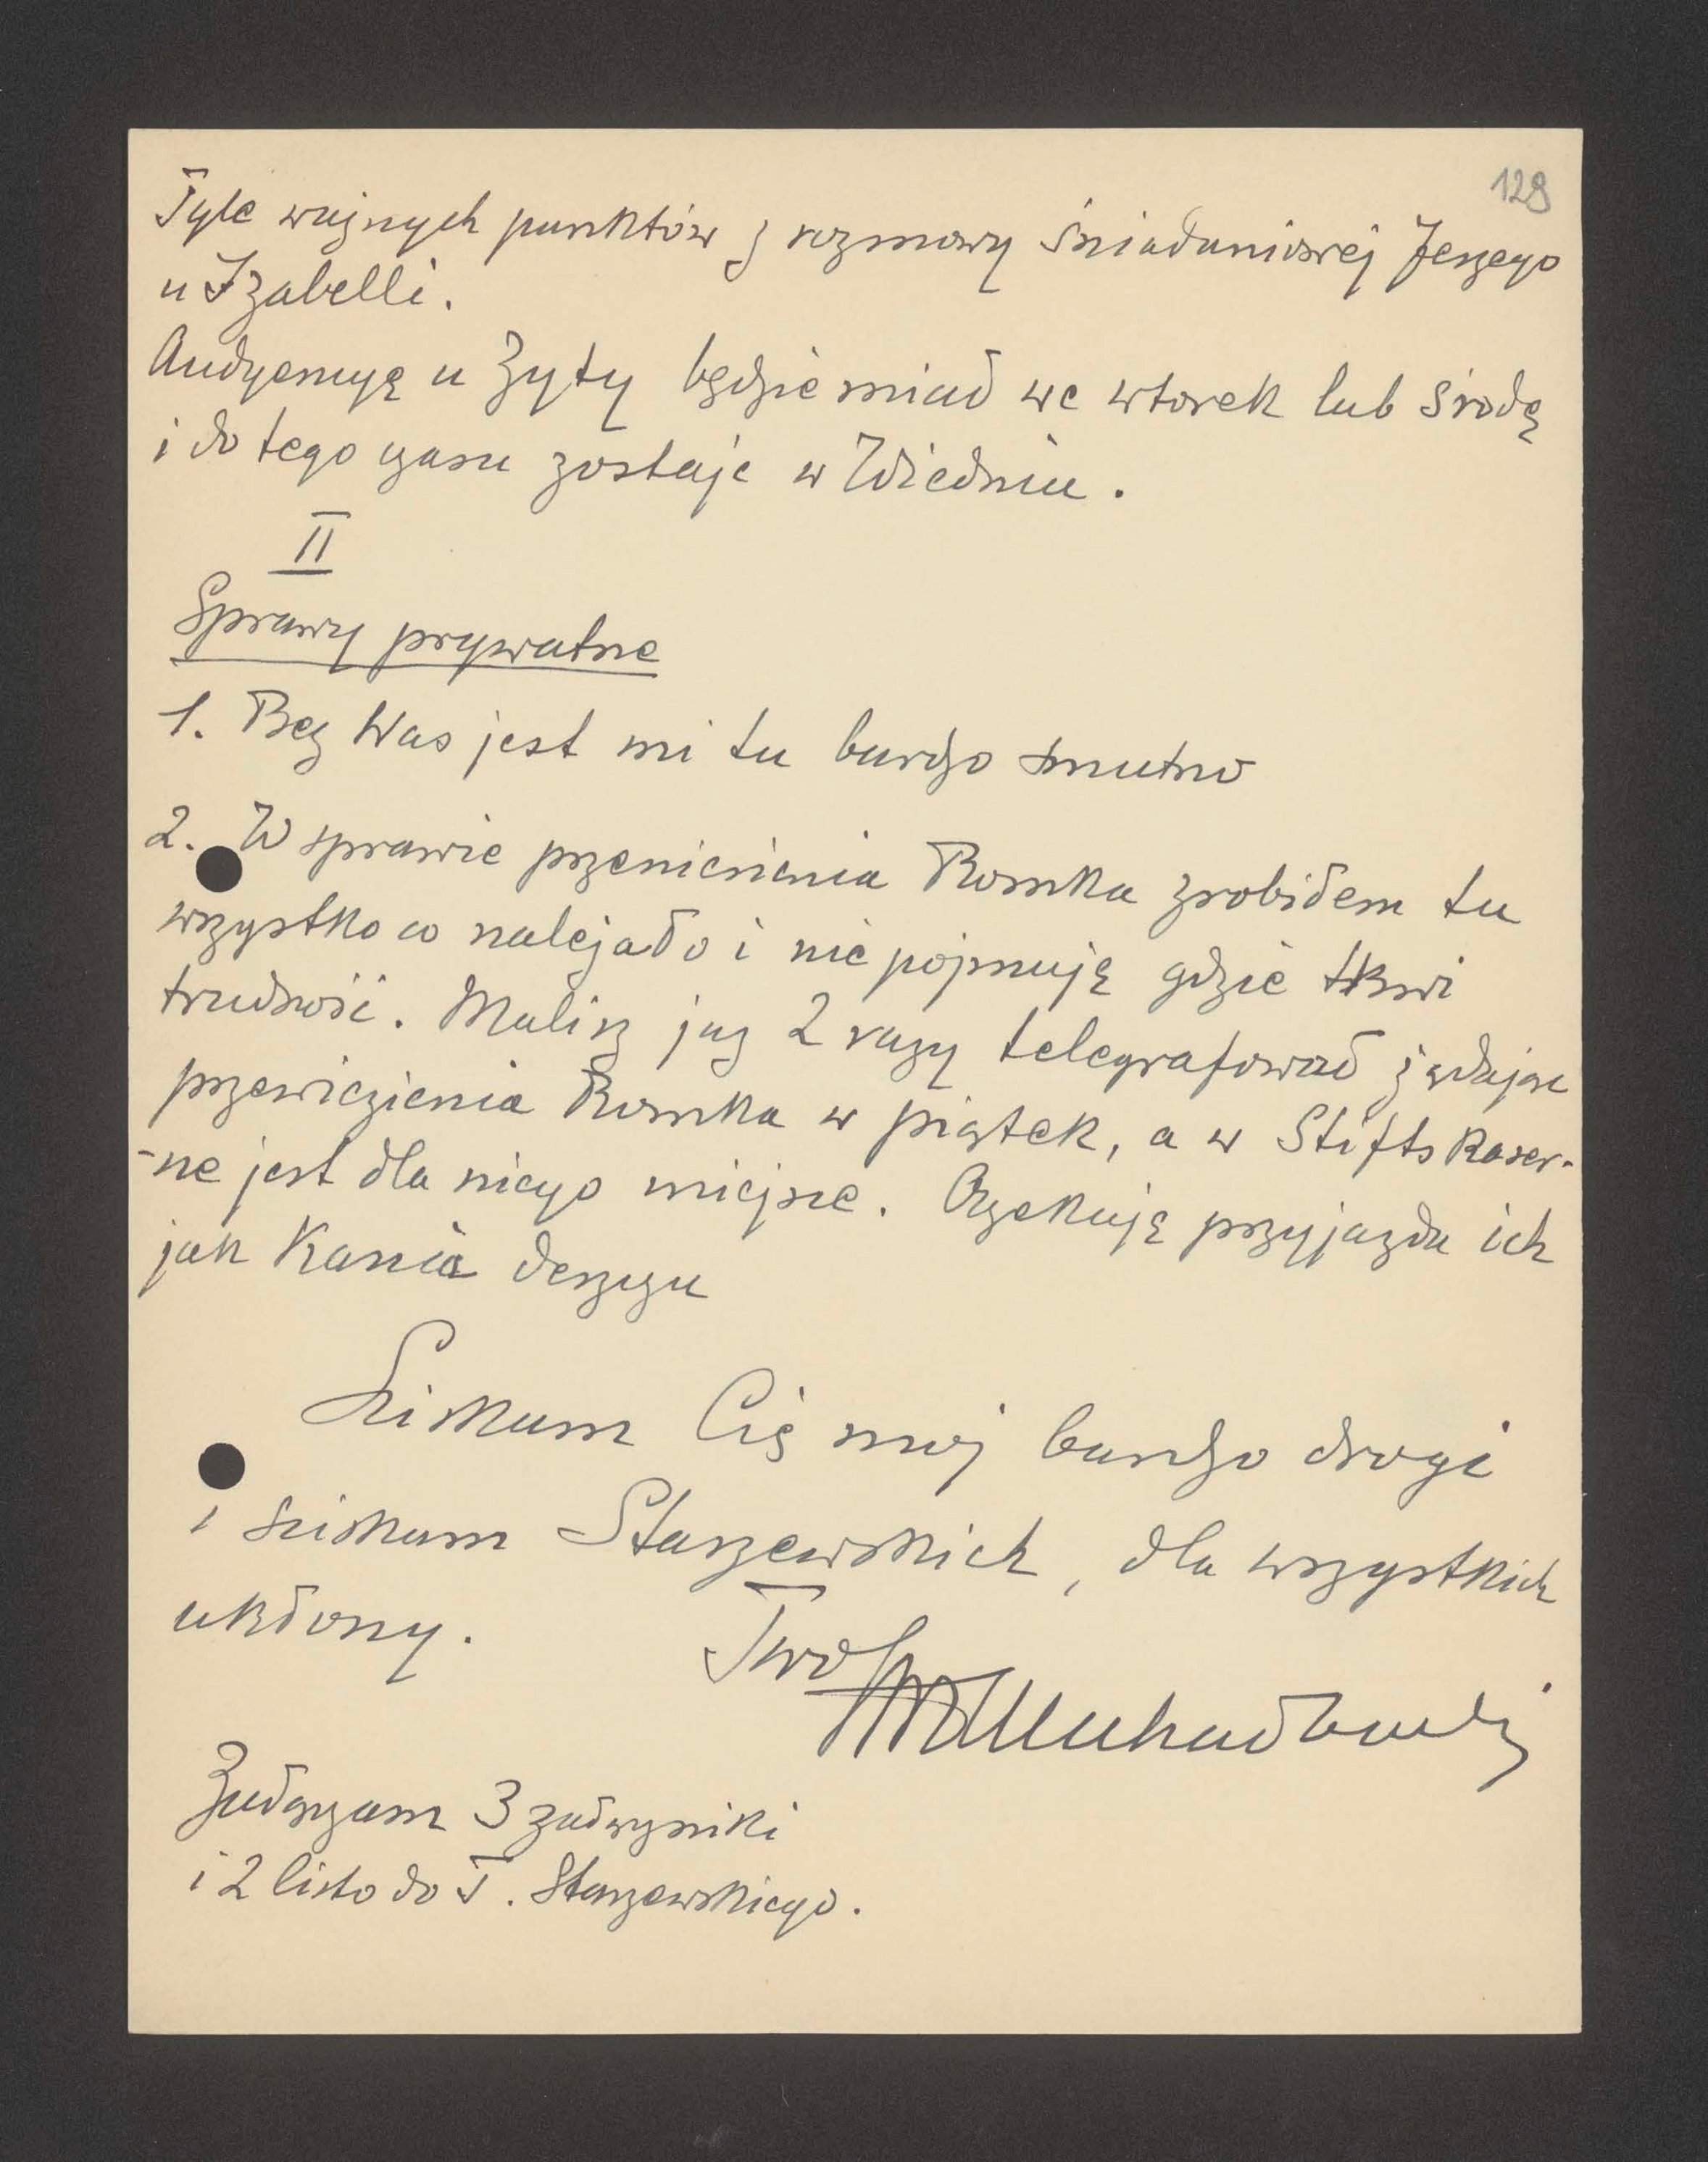 129
Tyle ważnych punktów z rozmowy śniadaniowej Jerzego
u Izabelli.
Audyencyę u Zyty będzie miał we wtorek lub środę
i do tego czasu zostaje w Wiedniu.
II
Sprawy prywatne
1. Bez Was jest mi tu bardzo smutno
2. W sprawie przeniesienia Romka zrobiłem tu
wszystko co należało i nie pojmuję gdzie tkwi
trudność. Malisz już 2 razy telegrafował żądając
przewiezienia Romka w piątek, a w Stiftskaser-
-ne jest dla niego miejsce. Oczekuję przyjazdu ich
jak Kania deszczu
Ściskam Cię mój bardzo drogi
i ściskam Starzewskich, dla wszystkich
ukłony.
Twój
Załączam 3 załączniki
i 2 listo do T. Starzewskiego.